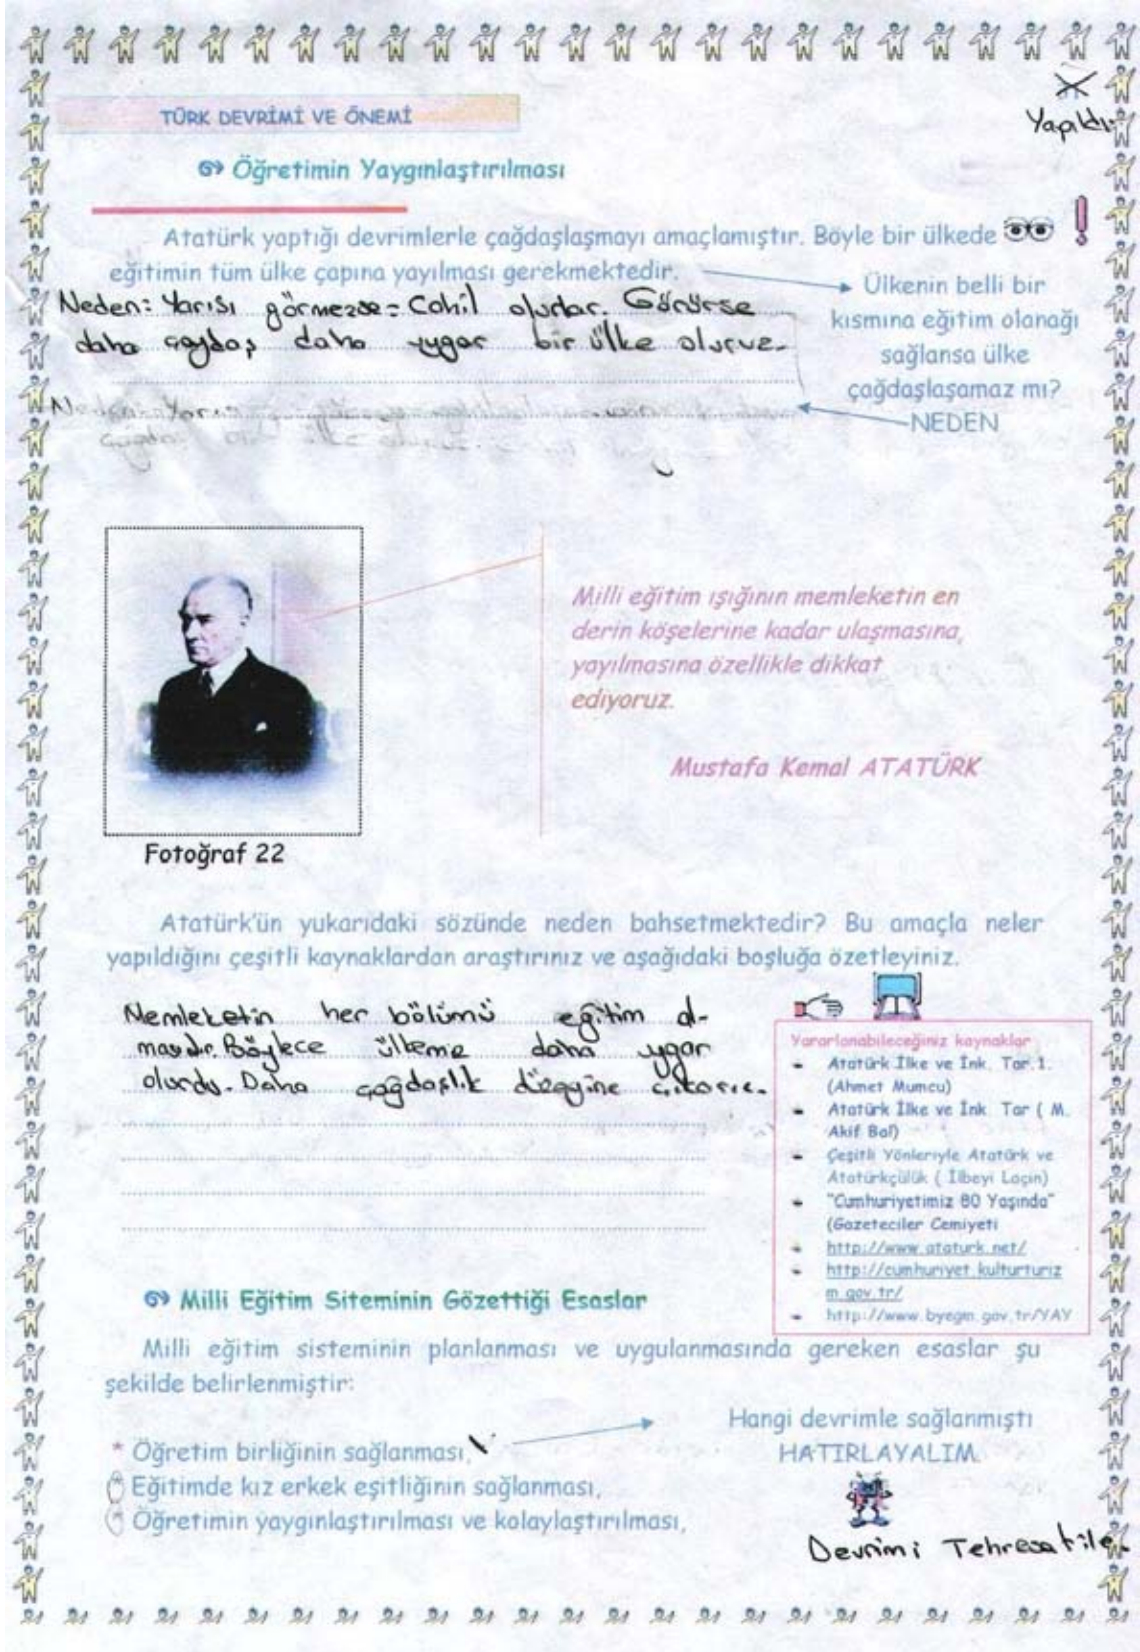 TÜRK DEVRİMİ VE ÖNEMİ
Yapıldı
Öğretimin Yaygınlaştırılması
Atatürk yaptığı devrimlerle çağdaşlaşmayı amaçlamıştır. Böyle bir ülkede
eğitimin tüm ülke çapına yayılması gerekmektedir.
Ülkenin belli bir
kısmına eğitim olanağı
sağlansa ülke
çağdaşlaşamaz mı?
NEDEN
Neden: Yarısı görmezse = Cahil olurlar. Görürse
daha çağdaş daha uygar bir ülke oluruz.
Milli eğitim ışığının memleketin en
derin köşelerine kadar ulaşmasına,
yayılmasına özellikle dikkat
ediyoruz.
Mustafa Kemal ATATÜRK
Fotoğraf 22
Atatürk'ün yukarıdaki sözünde neden bahsetmektedir? Bu amaçla neler
yapıldığını çeşitli kaynaklardan araştırınız ve aşağıdaki boşluğa özetleyiniz.
Memleketin her bölümü eğitim al-
malıdır. Böylece ülkeme daha uygar
olurdu. Daha çağdaşlık
Yararlanabileceğiniz kaynaklar
Atatürk İlke ve İnk. Tar.1.
(Ahmet Mumcu)
Atatürk İlke ve İnk. Tar ( M.
Akif Bal)
Çeşitli Yönleriyle Atatürk ve
Atatürkçülük ( İlbeyi Laçin)
"Cumhuriyetimiz 80 Yaşında"
(Gazeteciler Cemiyeti
http://www.ataturk.net/
http://cumhuriyet.kulturturiz
m.gov.tr/
http://www.byegm.gov.tr/YAY
Milli Eğitim Siteminin Gözettiği Esaslar
Milli eğitim sisteminin planlanması ve uygulanmasında gereken esaslar şu
şekilde belirlenmiştir:
* Öğretim birliğinin sağlanması,
Eğitimde kız erkek eşitliğinin sağlanması,
Öğretimin yaygınlaştırılması ve kolaylaştırılması,
Hangi devrimle sağlanmıştı
HATIRLAYALIM
Devrimi